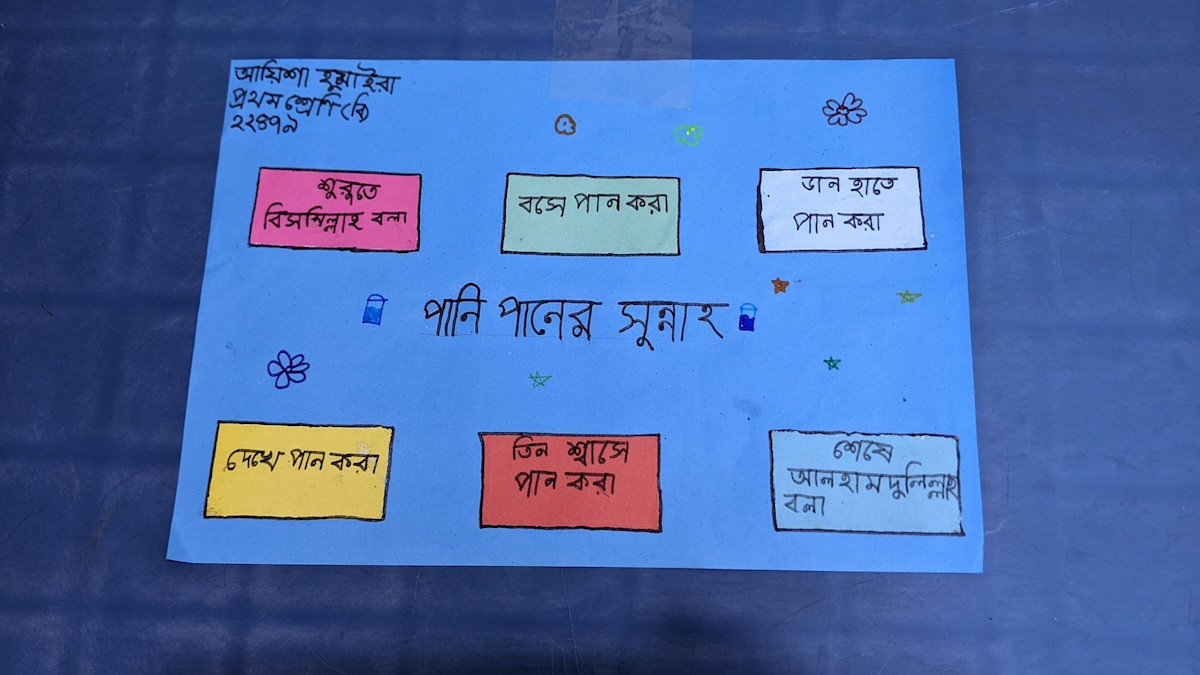 আয়িশা হুমাইরা
প্রথম শ্রেণি (বি)
২২৪৭৯
শুরুতে
বিসমিল্লাহ বলা
বসে পান করা
ডান হাতে
পান করা
পানি পানের সুন্নাহ
দেখে পান করা
তিন শ্বাসে
পান করা
শেষে
আলহামদুলিল্লাহ
বলা